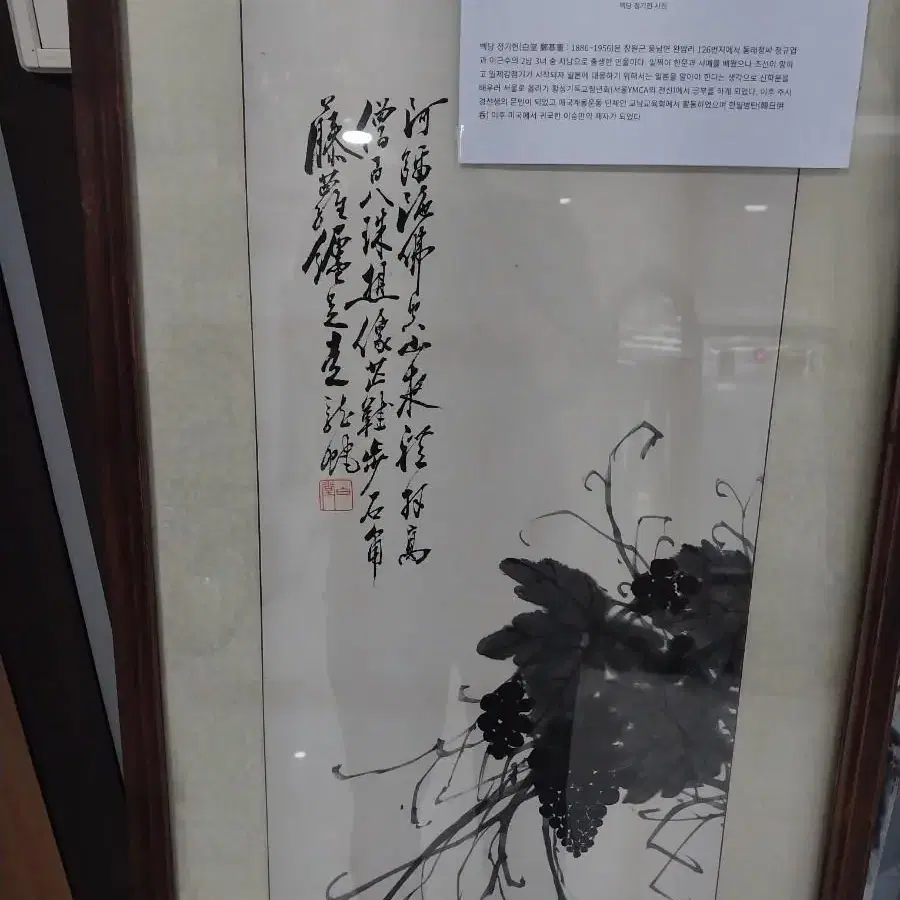 백당 정기헌 사진
백당 정기헌(白堂 鄭基憲 : 1886~1956)은 창원군 웅남면 완암리 126번지에서 동래정씨 정규엽
과 이근수의 2남 3녀 중 차남으로 출생한 인물이다. 일찍이 한문과 서예를 배웠으나 조선이 망하
고 일제강점기가 시작되자 일본에 대응하기 위해서는 일본을 알아야 한다는 생각으로 신학문을
배우러 서울로 올라가 황성기독교청년회(서울YMCA의 전신)에서 공부를 하게 되었다. 이후 주시
경선생의 문인이 되었고 애국계몽운동 단체인 교남교육회에서 활동하였으며 한일병탄(韓日倂
呑) 이후 미국에서 귀국한 이승만의 제자가 되었다.
阿彌陀佛 山 高
僧百八珠想像芒鞋步石角
藤蘿纏足走龍蛇
白堂